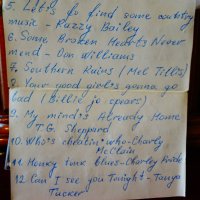 5. Let's do find some country
music - Razzy Bailey
6. Some Broken Hearts Never
mend - Don Williams
7. Southern Rains (Mel Tillis)
8. Your good girl's gonna go
bad (Billie jo spears)
9. My mind's Already Home
T.G. Sheppard
10. Who's cheatin' who-Charly
McClain
11. Honky tonk blues-Charley Pride
12. Can I see you Tonight - Tanya
Tucker